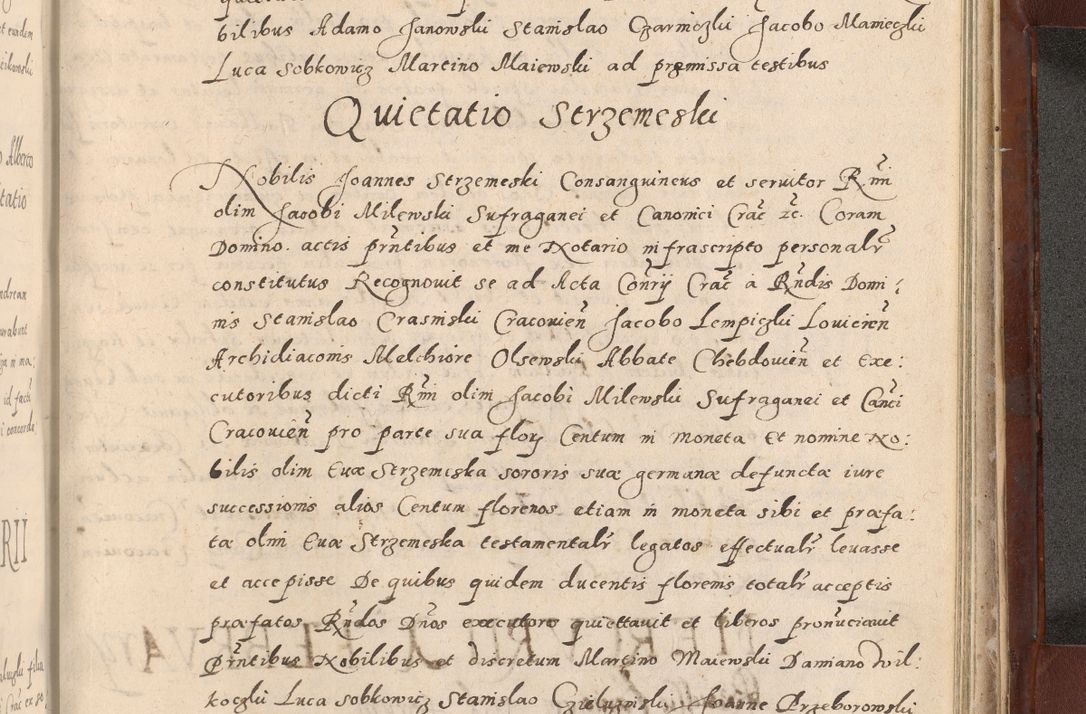 bilibus Adamo Janowski Stanislao Czarniczki Jacobo Manieczki
Luca Sobkowicz Martino Maiewski ad præmissa testibus
Quietatio Strzemeski
Nobilis Joannes Strzemeski Consanguineus et seruitor Rm̃i
olim Jacobi Milewski Sufraganei et Canonici Crac̃ zc̃. Coram
Domino. actis prñtibus et me Notario infrascripto personalr̃
constitutus Recognouit se ad Acta Coñrij Crac̃ a Rñdis Domi:
nis Stanislao Crasniski Cracouien̄ Jacobo Lempiczki Louicien̄
Archidiaconis Melchiore Olsewski Abbate Chebdouien̄ et Exe:
cutoribus dicti Rm̃i olim Jacobi Milewski Sufraganei et Cañci
Cracouien̄ pro parte sua florj Centum in moneta Et nomine No:
bilis olim Euæ Strzemeska sororis suæ germanæ defunctæ iure
successionis alios Centum florenos etiam in moneta sibi et præfa:
tæ olim Euæ Strzemeska testamentalr̃ legatos effectualr̃ leuasse
et accepisse De quibus quidem ducentis florenis totalr̃ acceptis
præfatos Rñdos Dños executore quiettauit et liberos pronuciauit
prñtibus Nobilibus et discretum Martino Maiewski Damiano Wil:
koczki Luca Sobkowicz Stanislao Joanne Przeborowski